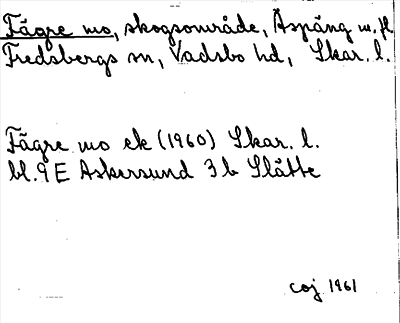 Fägre mo, skogsområde, Äspäng m.fl
Fredsbergs sn, Vadsbo hd, Skar. l.
Fägre mo ek (1960) Skar. l.
bl. 9 E Askersund 3 b Slätte
coj 1961